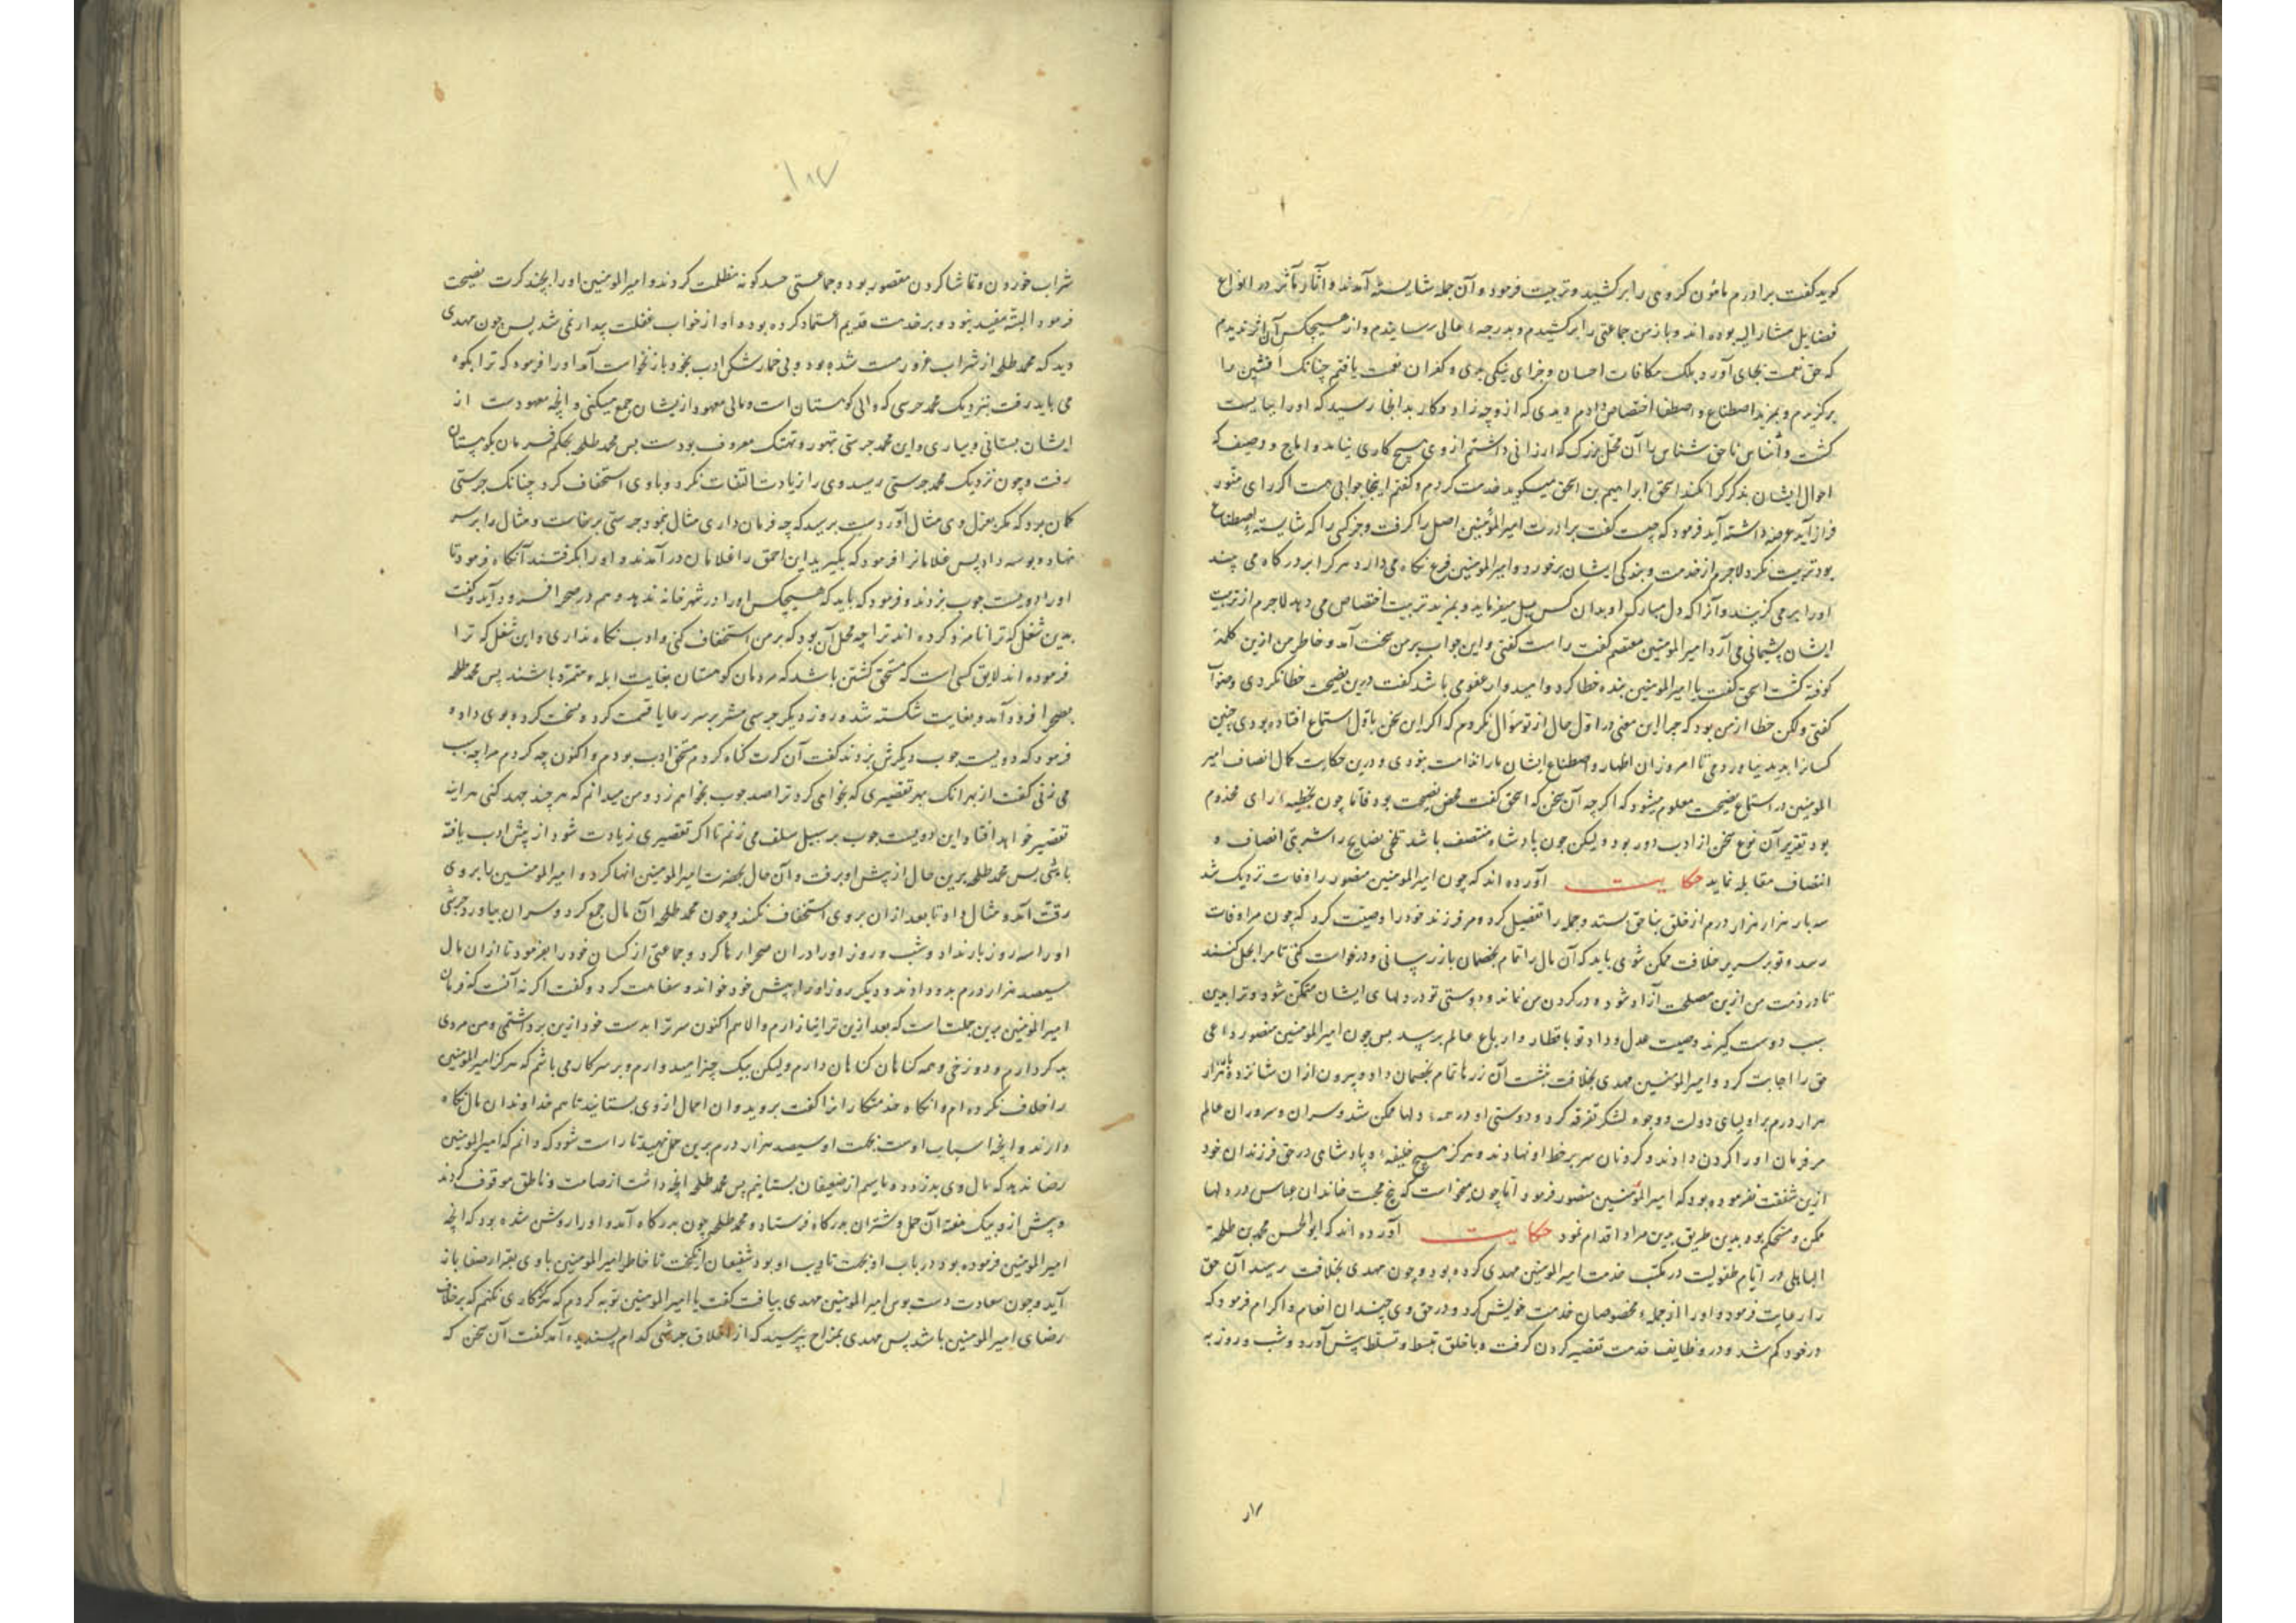 کوید کفت برادرم مامون کروهی را برکشید و تربیت فرمود و آن جمله شایسته آمدند و آثار مآثر در انواع
فضایل مشار الیه بوده اند و باز من جماعتی را برکشیدم و بدرجهٔ عالی رسانیدم و از هیچکس آن اثر ندیدم
که حق نعمت بجای آورد بلک مکافات احسان و جزای نیکی بدی و کفران نعمت یافتم چنانک افشین را
برکزیدم و بمزید اصطناع و اصطفا اختصاص دادم دیدی که از وچه زاد و کار بدانجا رسید که او را ببایست
کشت و اشناس ناحق شناس با آن محل بزرک که ارزانی داشتم از وی هیچ کاری نیامد و ایتاخ و وصیف که
احوال ایشان بذکر کرا نکند اسحق ابراهیم بن اسحق میکوید خدمت کردم و کفتم اینجا جوابی هست اکر رای منور
فراز آید عرضه داشته آید فرمود که چیست کفت برادرت امیر المؤمنین اصل را کرفت و جز کسی را که شایستهٔ اصطناع
بود تربیت نکرد لاجرم از خدمت و بندکی ایشان برخورد و امیر المومنین فرع نکاه می دارد هر کرا بر درکاه می بیند
او را برمی کزیند و آنرا که دل مبارک او بدان کس میل میفرماید و بمزید تربیت اختصاص می دهد لاجرم از تربیت
ایشان پشیمانی می آرد امیر المومنین معتصم کفت راست کفتی و این جواب بر من سخت آمد و خاطر من ازین کلمه
کوفته کشت اسحق کفت یا امیر المومنین بنده خطا کرد و امیدوار عفو می باشد کفت درین نصیحت خطا نکردی و صواب
کفتی ولکن خطا از من بود که چرا این معنی در اول حال از تو سؤال نکردم که اکر این سخن باول استماع افتاده بودی چنین
کسانرا پدید نیاوردمی تا امروز ان اظهار و اصطناع ایشان بار ندامت بنودی و درین حکایت کمال انصاف امیر
المومنین در استماع نصیحت معلوم میشود که اکر چه آن سخن که اسحق کفت محض نصیحت بود فاما چون بتخطیهٔ رای مخدوم
بود تقریر آن نوع سخن از ادب دور بود و لیکن چون پادشاه منتصف باشد تلخی نصایح را شربتی انصاف و
انتصاف مقابله نماید حکایت آورده اند که چون امیر المومنین منصور را وفات نزدیک شد
سه بار هزار هزار درم از خلق بناحق بستد و جمله را تفصیل کرد و مر فرزند خود را وصیت کرد که چون مرا وفات
رسد و تو بر سریر خلافت ممکن شوی باید که آن مال را تمام بخصمان باز رسانی و درخواست کنی تا مرا بحل کنند
تا در ذمت من ازین مصلحت آزاد شود و در کردن من نماند و دوستی تو در دلهای ایشان متمکن شود و ترا بدین
سبب دوست کیرند و صیت عدل و داد تو باقطار و ارباع عالم برسد بس چون امیر المومنین منصور داعی
حق را اجابت کرد و امیر المومنین مهدی بخلافت بنشست آن زرها تمام بخصمان داد و بیرون ازان شانزده بار هزار
هزار درم بر اولیای دولت و وجوه لشکر تفرقه کرد و دوستی او در همهٔ دلها ممکن شد و سران و سروران عالم
مر فرمان او را کردن دادند و کردنان سر بر خط او نهادند و هرکز هیچ خلیفه و پادشاهی در حق فرزندان خود
ازین شفقت نفرموده بود که امیر المومنین منصور فرمود اما چون میخواست که بیخ محبت خاندان عباس در دلها
ممکن و مستحکم بود بدین طریق بدین مراد اقدام نمود حکایت آورده اند که ابو الحسن محمد بن طلحة
الباهلی در ایام طفولیت در مکتب خدمت امیر المومنین مهدی کرده بود و چون مهدی بخلافت رسید آن حق
را رعایت فرمود و او را از جملهٔ مخصوصان خدمت خویش کرد و در حق وی چندان انعام و اکرام فرمود که
در خود کم شد و در وظایف خدمت تقصیر کردن کرفت و با خلق تبسط و تسلط پیش آورد و شب و روز به
شراب خوردن و تماشا کردن مقصور بود و جماعتی حسد کونه مظلمت کردند و امیر المومنین او را بچند کرت نصیحت
فرمود البته مفید نبود و بر خدمت قدیم اعتماد کرده بود و او از خواب غفلت بیدار نمی شد بس چون مهدی
دید که محمد طلحه از شراب غرور مست شده بود و بی خمارشکن ادب بخود باز نخواست آمد او را فرمود که ترا بکوه
می باید رفت بنزدیک محمد حرسی که والی کوهستان است و مالی معهود از یشان جمع میکنی و انچه معهودست از
ایشان بستانی و بیاری و این محمد حرستی بتهور و تهتک معروف بودست بس محمد طلحه بحکم فرمان بکوهستان
رفت و چون نزدیک محمد حرستی رسید وی را زیادت التفات نکرد و با وی استخفاف کرد چنانک حرستی
کمان برد که مکر بعزل وی مثال آوردست برسید که چه فرمان داری مثال بنمود حرستی برخاست و مثال را بر سر
نهاد و بوسه داد پس غلامانرا فرمود که بکیرید این احمق را غلامان در آمدند و او را بکرفتند آنکاه فرمود تا
او را دویست چوب بزدند و فرمود که باید که هیچکس او را در شهر خانه ندهد و هم در صحرا فرود آید و کفت
بدین شغل که ترا نامزد کرده اند ترا چه محل آن بود که بر من استخفاف کنی و ادب نکاه نداری و این شغل که ترا
فرموده اند لایق کسی است که مستحق کشتن باشد که مردمان کوهستان بغایت ابله و متمرد باشند پس محمد طلحه
بصحرا فرود آمد و بغایت شکسته شد و روز دیکر حرسی مشر بر سر رعایا قسمت کرد و سخت کرد و بوی داد و
فرمود که دویست چوب دیکرش بزدند کفت آن کرت کناه کردم مستحق ادب بودم و اکنون چه کردم مرا چه سبب
می زنی کفت از بهر انک بهر تقصیری که بخواهی کرد ترا صد چوب بخواهم زد و من میدانم که هر چند جهد کنی هر اینه
تقصیر خواهد افتاد این دویست چوب بر سبیل سلف می زنم تا اکر تقصیری زیادت شود از پیش ادب یافته
باشی بس محمد طلحه برین حال از پیش او برفت و آن حال بحضرت امیر المومنین انها کرد و امیر المومنین را بر وی
رقت آمد و مثال داد تا بعد ازان بر وی استخفاف نکند و چون محمد طلحه آن مال جمع کرد و سران بیاورد حرستی
او را سه روز بار نداد و شب و روز او را در ان صحرا رها کرد و جماعتی از کسان خود را بفرمود تا ازان مال
سیصد هزار درم بدو دادند و دیکر روز او را پیش خود خواند و سفاهت کرد و کفت اکر نه آنست که فرمان
امیر المومنین برین جملت است که بعد ازین ترا نیازارم و الا هم اکنون سر ترا بدست خود ازین برداشتمی و من مردی
بد کردارم و دوزخی و همه کناهان کناهان دارم و لیکن بیک چیز امیدوارم و بر سر کار می باشم که هرکز امیر المومنین
را خلاف نکرده ام و آنکاه خدمتکارانرا کفت بروید و ان احمال از وی بستانید تا هم خداوندان مال نکاه
دارند و انچه اسباب اوست بجهت او سیصد هزار درم برین حمل نهید تا راست شود که دانم که امیر المومنین
رضا ندهد که مال وی بدزدد و ما سیم از ضعیفان بستانیم پس محمد طلحه انچه داشت از صامت و ناطق موقوف کردند
و پیش از و بیک هفته آن حمل و شتران بدرکاه فرستاد و محمد طلحه چون بدرکاه آمد و او را روشن شده بود که انچه
امیر المومنین فرموده بود در باب او بجهت تادیب او بود شفیعان انکیخت تا خاطر امیر المومنین با وی بقرار صفا باز
آید و چون سعادت دست بوس امیر المومنین مهدی بیافت کفت یا امیر المومنین توبه کردم که هرکز کاری نکنم که بر خلاف
رضای امیر المومنین باشد پس مهدی بمزاح بپرسید که از اخلاق حرشی کدام پسندیده آمد کفت آن سخن که